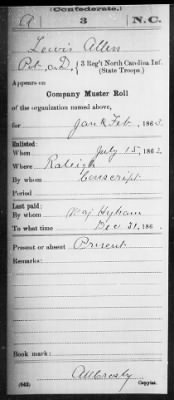 (Confederate.)
A 3 N.C.
Lewis Allen
Pvt, Co. D, 3 Reg't North Carolina Inf.
(State Troops.)
Appears on
Company Muster Roll
of the organization named above,
for Jan & Feb, 1863.
Enlisted:
When July 15, 1862.
Where Raleigh
By whom Conscript
Period
Last paid:
By whom Maj Hyham
To what time Dec 31, 186
Present or absent Present
Remarks:
Book mark:
(642) Copyist.